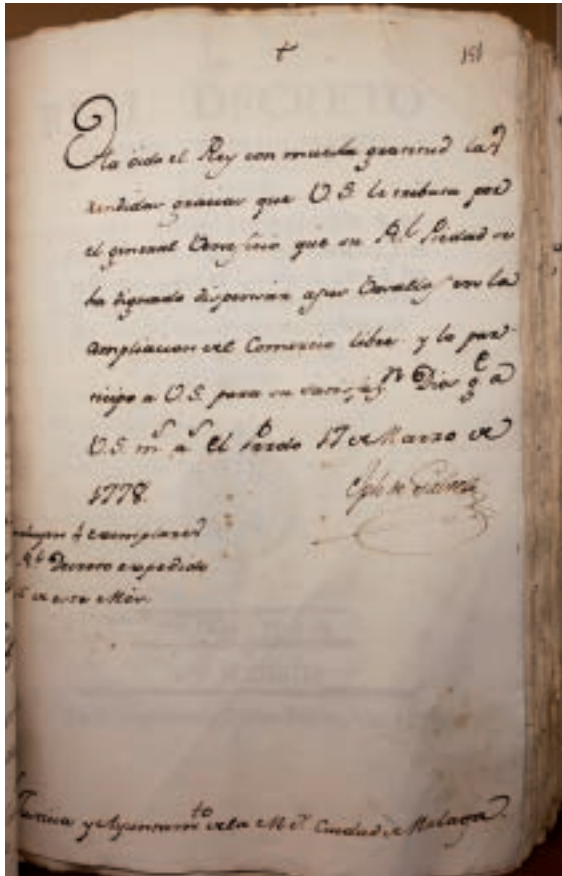 t
151
Ha oido el Rey con mucha gratitud las
rendidas gracias que V.S. le tributa por
el general beneficio que su Rl Piedad se
ha dignado dispensar a sus Vasallos en la
ampliacion del Comercio libre y lo par-
ticipo a V.S. para su satisfn Dios ge a
V.S. ms as El Pardo 17 de Marzo de
1778.
Joseph de Galvez
4 exemplares
Rl Decreto expedido
de este Mes.
Justicia y Ayuntamto de la M. Ciudad de Malaga.